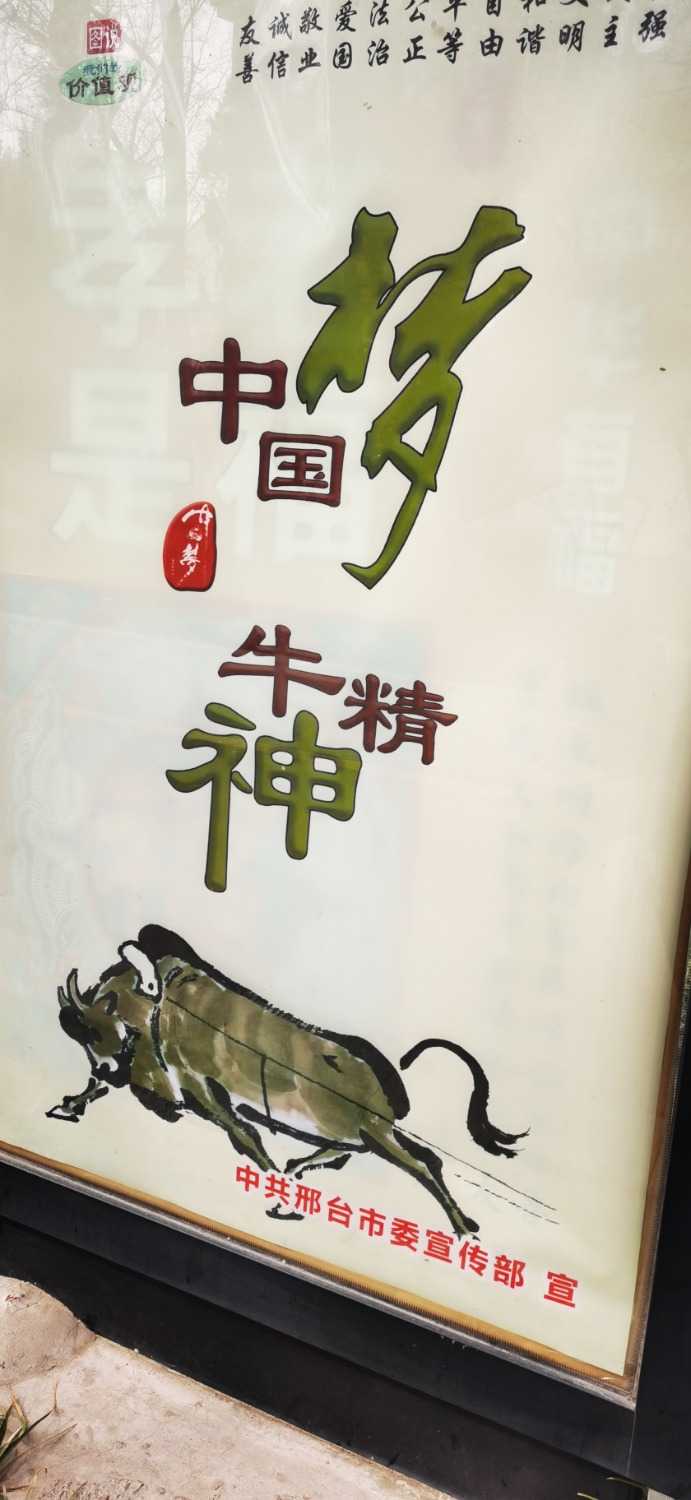 图说
我们的
价值观
强 主 明 谐 由 等 正 治 国 业 信 善
和 自 平 公 法 爱 敬 诚 友
中国梦
中国梦
牛精神
中共邢台市委宣传部 宣